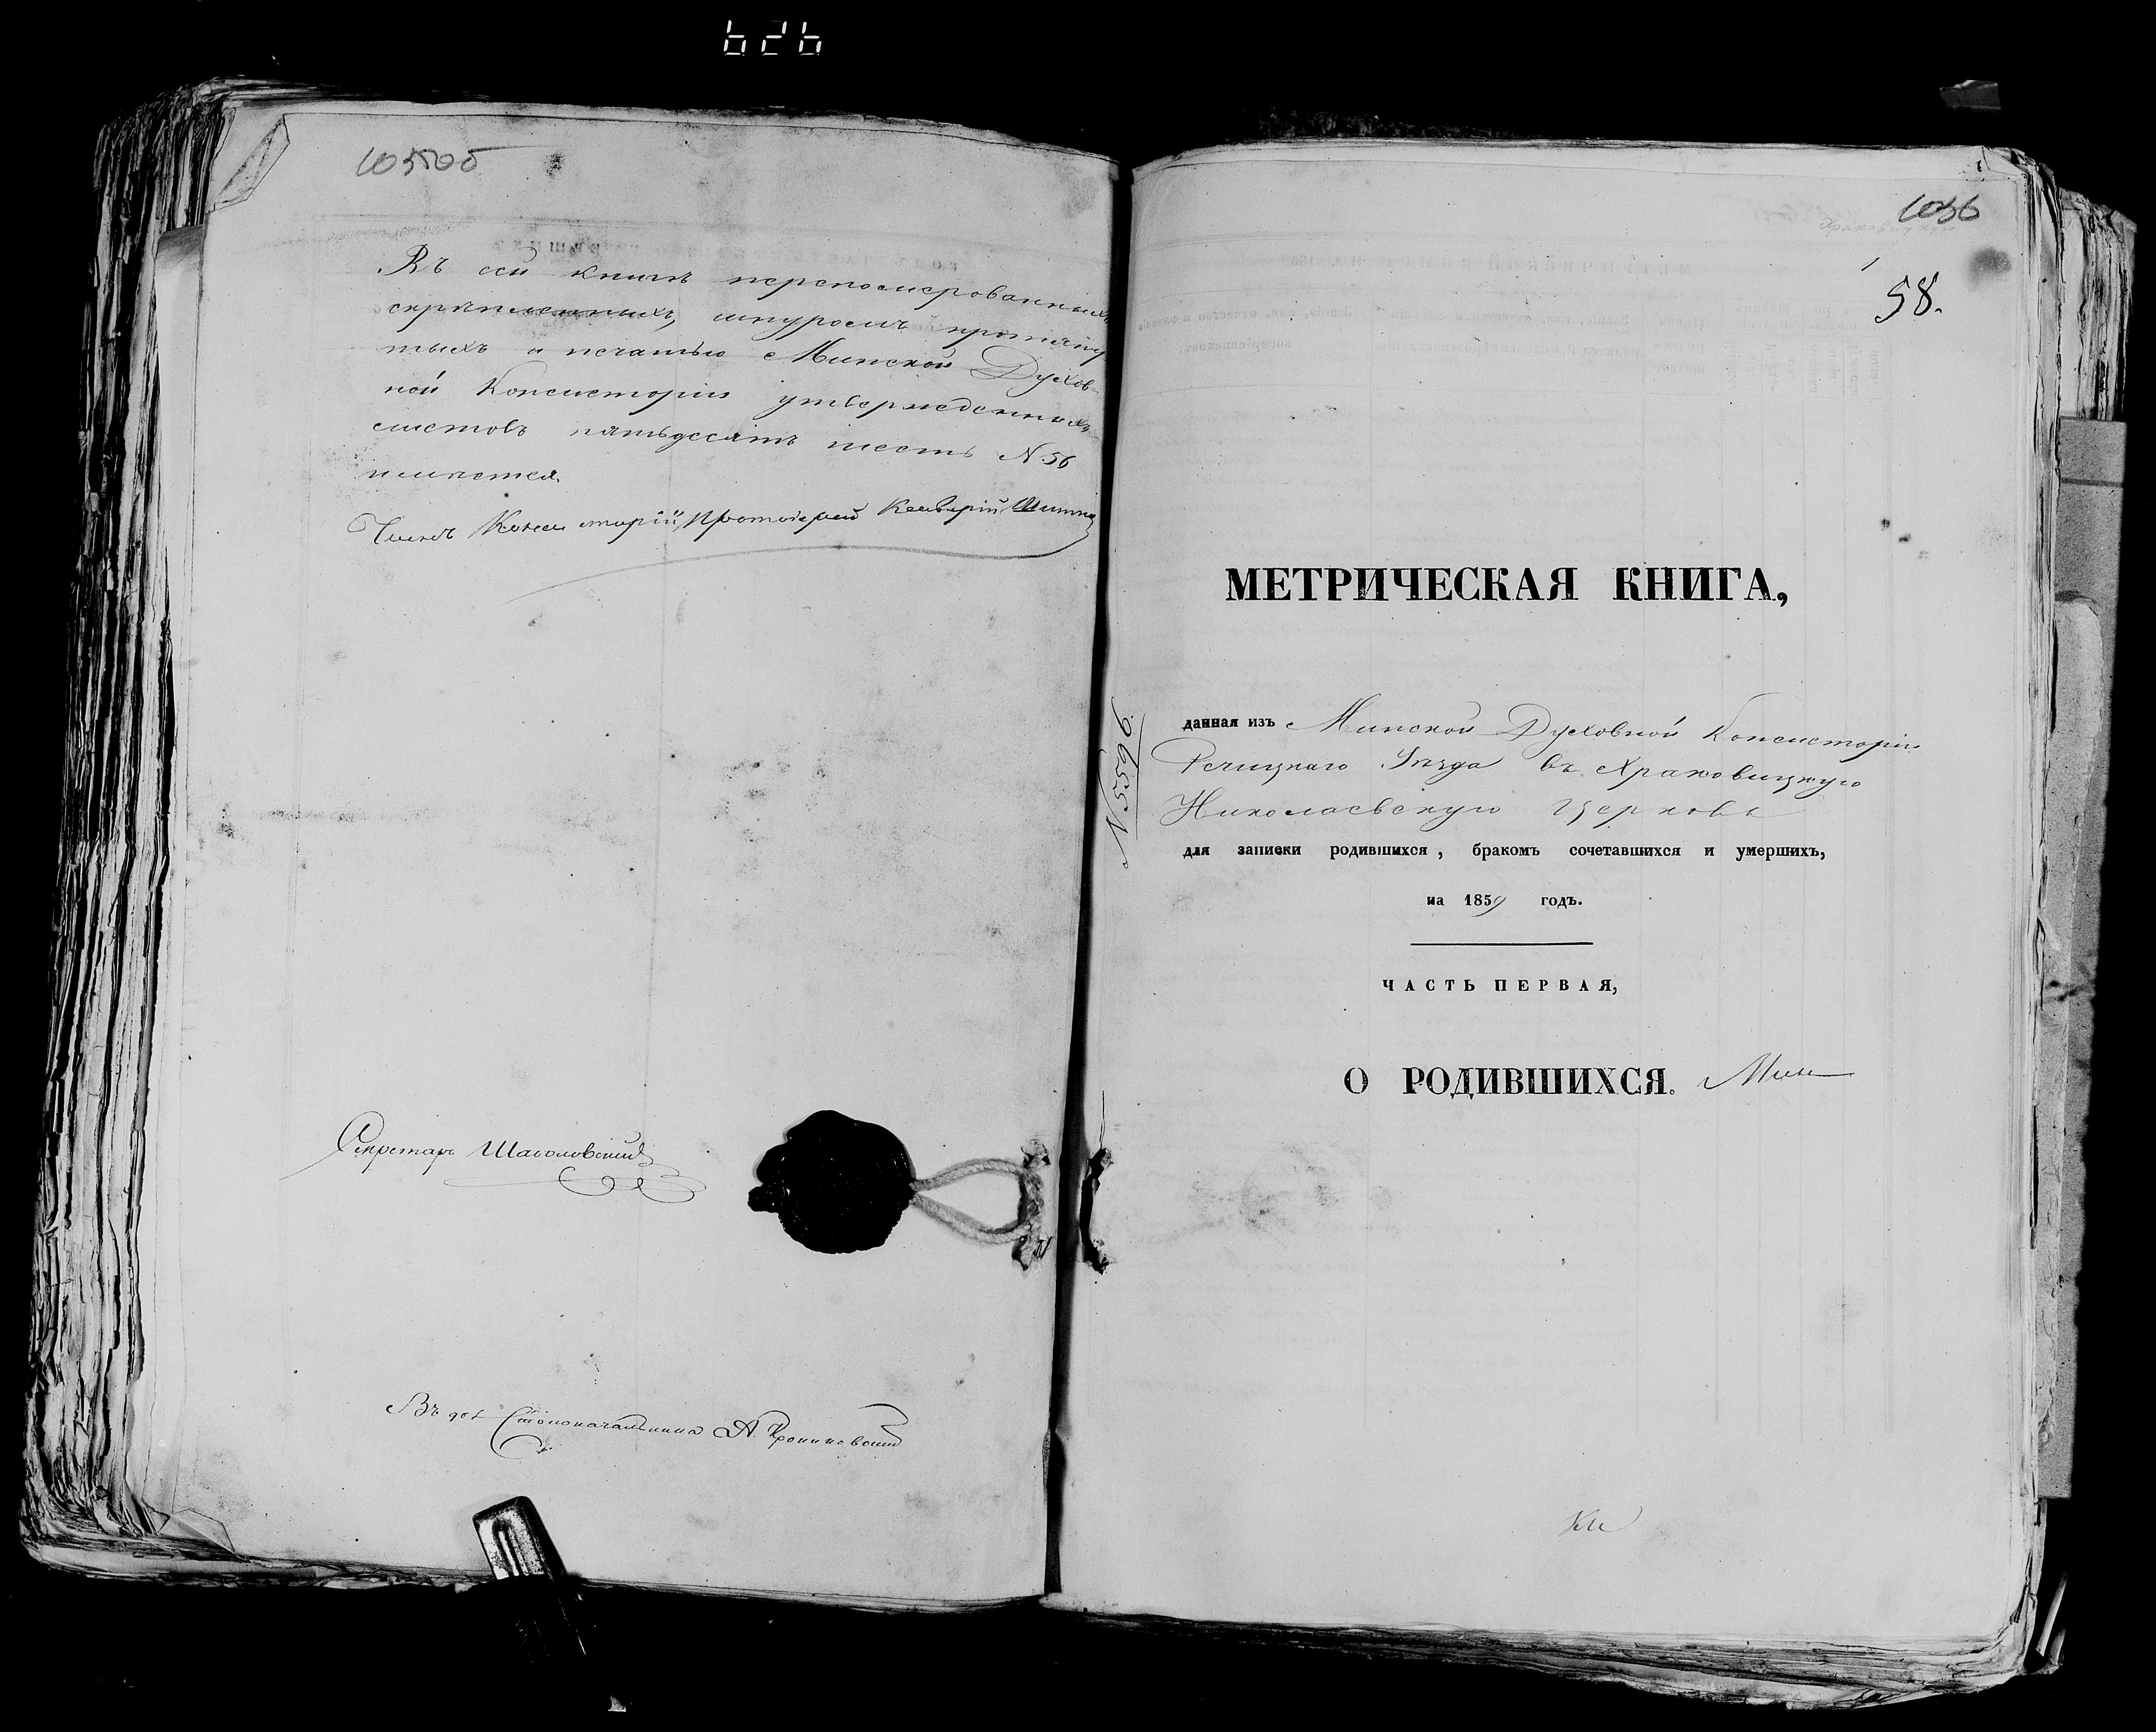 626
1035об
Въ сей книгѣ перенумерованныхъ
скрѣпленныхъ, шнуромъ протяну
тыхъ и печатью Минской Духов-
ной Консисторіи утвержденныхъ
листовъ пятьдесятъ шесть N 56
имѣется.
Членъ Консисторіи, Протоіерей
Секретарь
Въ дол. Столоначальника А.
1036
58.
МЕТРИЧЕСКАЯ КНИГА,
N 5569
данная изъ Минской Духовной Консисторіи
Речицкаго Уѣзда въ Храковицкую
Николаевскую Церковь
для записки родившихся, бракомъ сочетавшихся и умершихъ,
на 1859 годъ.
ЧАСТЬ ПЕРВАЯ,
О РОДИВШИХСЯ.